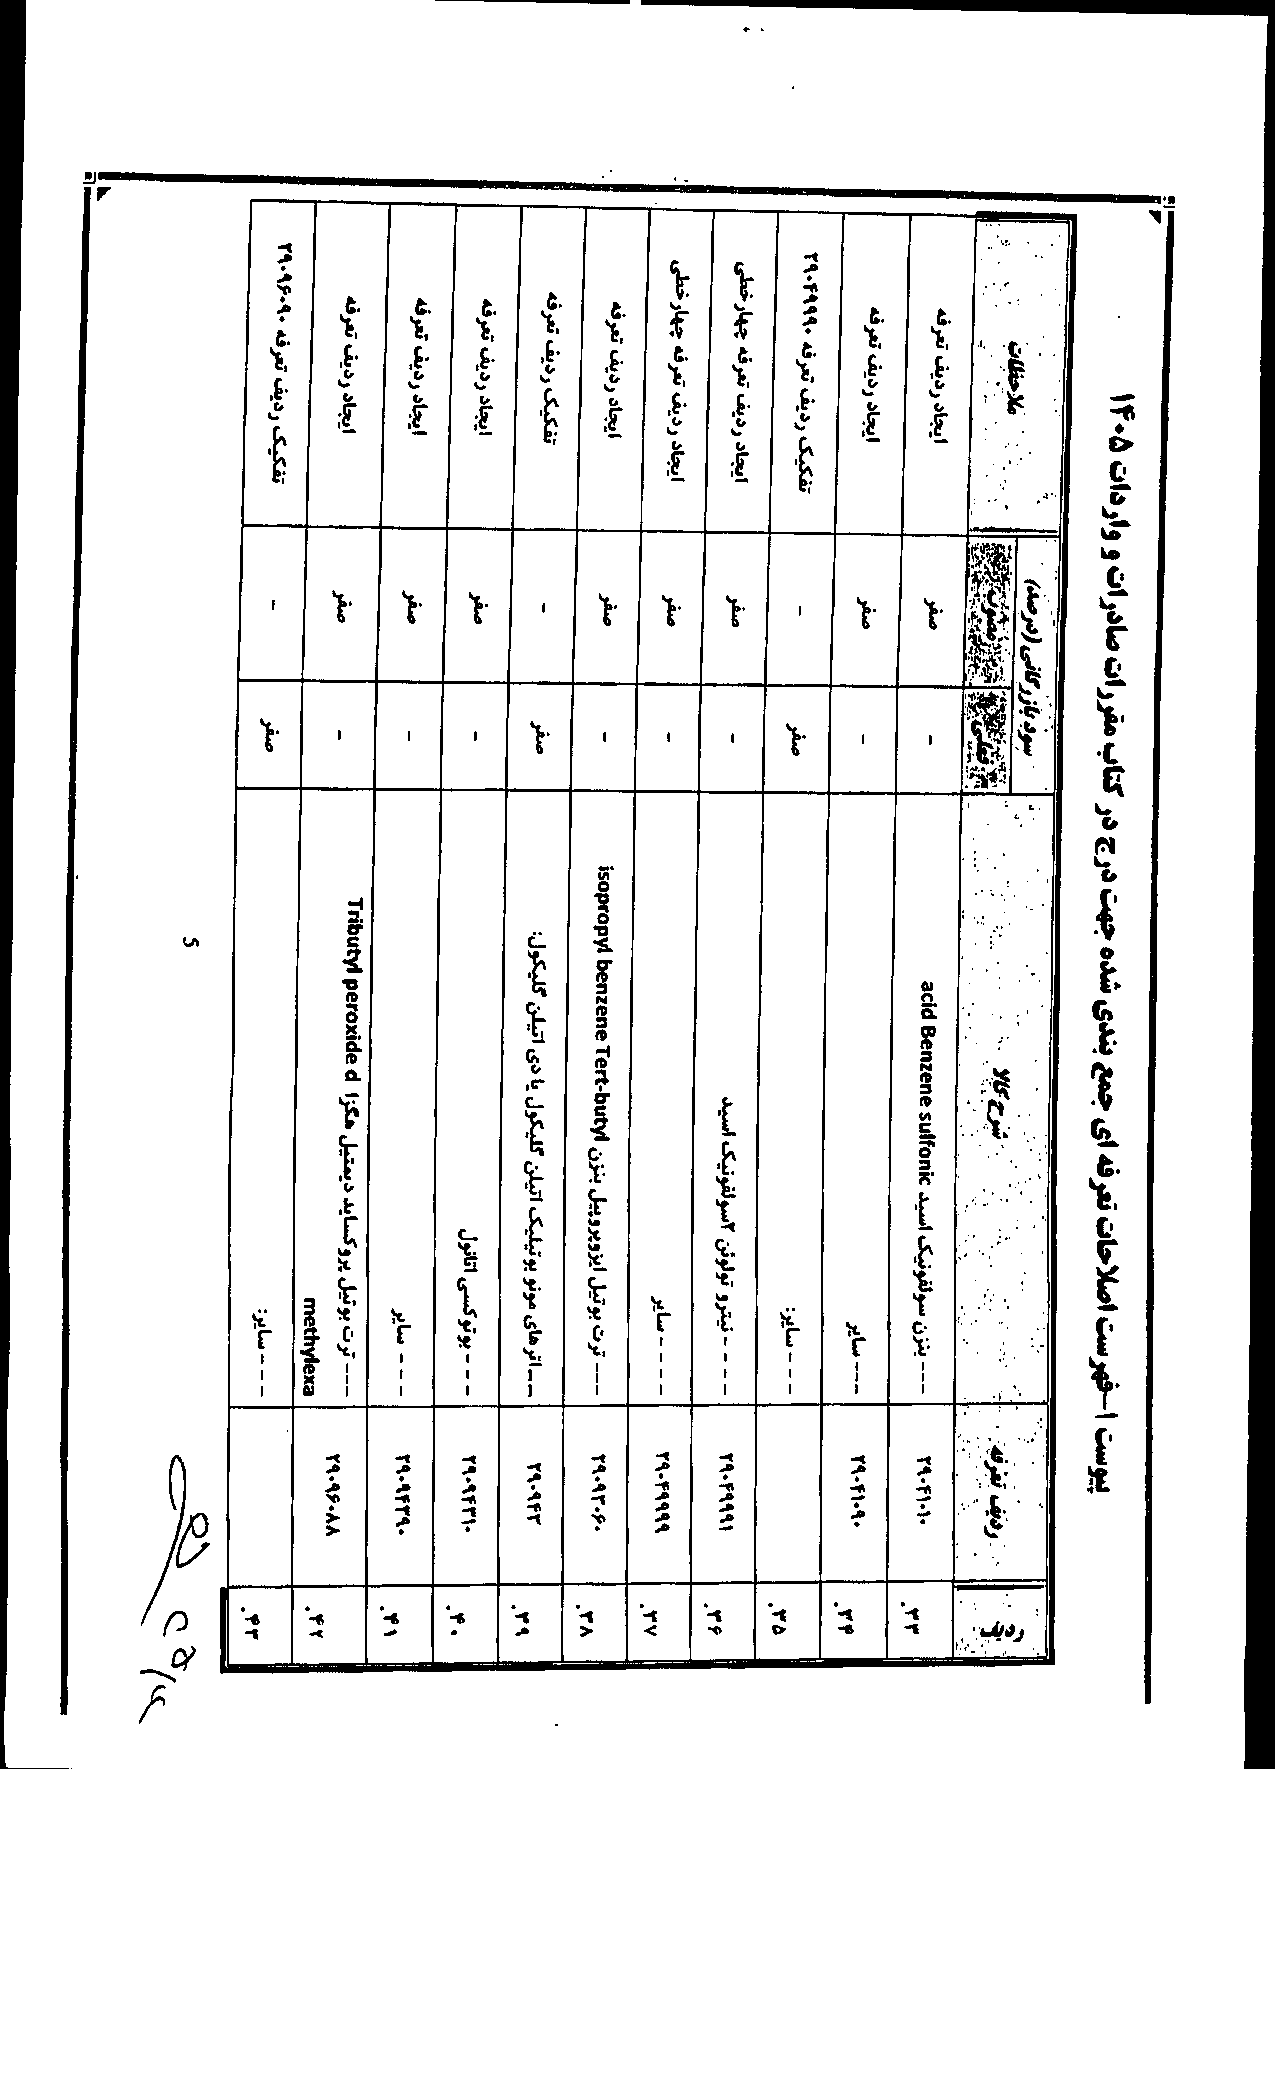 پیوست ۱-فهرست اصلاحات تعرفه ای جمع بندی شده جهت درج در کتاب مقررات صادرات و واردات ۱۴۰۵
ردیف ردیف تعرفه شرح کالا سود بازرگانی (درصد) ملاحظات
فعلی مصوب
۳۳. ۲۹۰۴۱۰۱۰ ---بنزن سولفونیک اسید acid Benzene sulfonic - صفر ایجاد ردیف تعرفه
۳۴. ۲۹۰۴۱۰۹۰ ---سایر - صفر ایجاد ردیف تعرفه
۳۵. - - - سایر: صفر - تفکیک ردیف تعرفه ۲۹۰۴۹۹۹۰
۳۶. ۲۹۰۴۹۹۹۱ - - - - نیترو تولوئن ۲سولفونیک اسید - صفر ایجاد ردیف تعرفه چهارخطی
۳۷. ۲۹۰۴۹۹۹۹ - - - - سایر - صفر ایجاد ردیف تعرفه چهارخطی
۳۸. ۲۹۰۹۳۰۶۰ ---ترت بوتیل ایزوپروپیل بنزن isopropyl benzene Tert-butyl - صفر ایجاد ردیف تعرفه
۳۹. ۲۹۰۹۴۳ --اترهای مونو بوتیلیک اتیلن گلیکول یا دی اتیلن گلیکول: صفر - تفکیک ردیف تعرفه
۴۰. ۲۹۰۹۴۳۱۰ - - - بوتوکسی اتانول - صفر ایجاد ردیف تعرفه
۴۱. ۲۹۰۹۴۳۹۰ - - - سایر - صفر ایجاد ردیف تعرفه
۴۲. ۲۹۰۹۶۰۸۸ ---ترت بوتیل پروکساید دیمتیل هگزا Tributyl peroxide d - صفر ایجاد ردیف تعرفه
methylexa
۴۳. - - - سایر: صفر - تفکیک ردیف تعرفه ۲۹۰۹۶۰۹۰